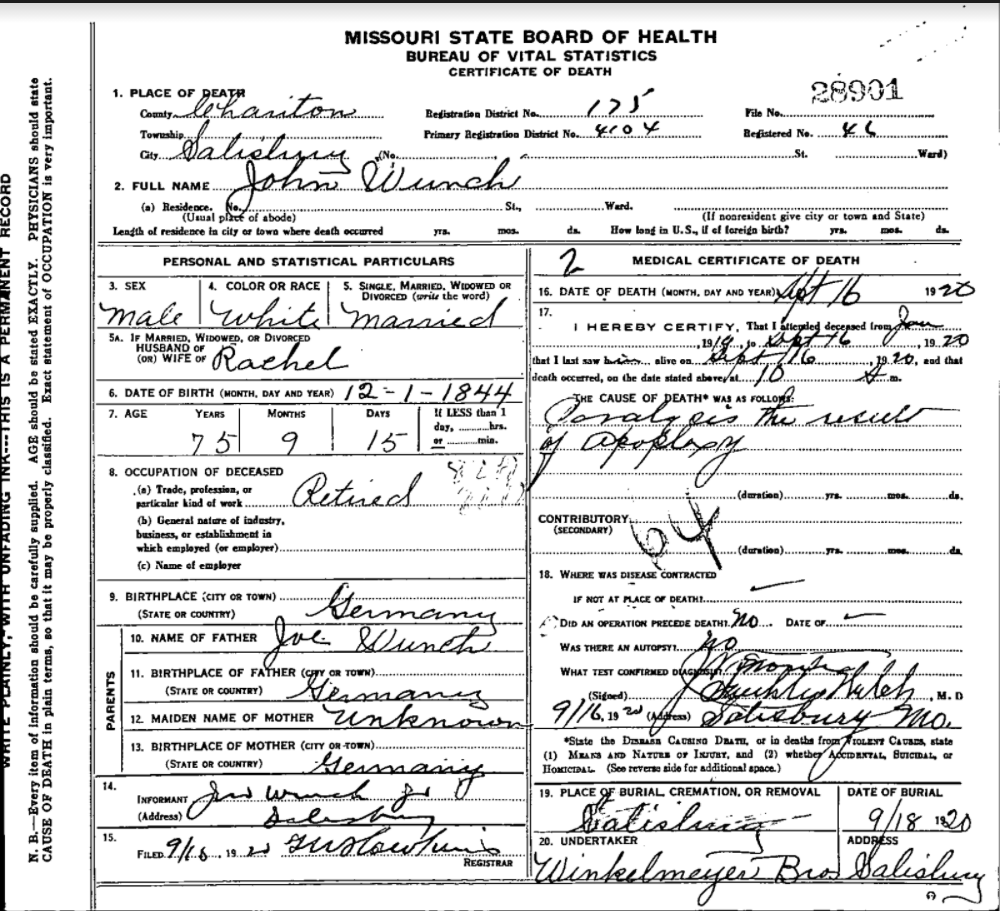 MISSOURI STATE BOARD OF HEALTH
BUREAU OF VITAL STATISTICS
CERTIFICATE OF DEATH
28901
1. PLACE OF DEATH
County Chariton Registration District No. 175 File No.
Township Primary Registration District No. 4104 Registered No. 46
City Salisbury (No. St. Ward)
2. FULL NAME John Wunch
(a) Residence. No. St., Ward.
(Usual place of abode) (If nonresident give city or town and State)
Length of residence in city or town where death occurred yrs. mos. ds. How long in U.S., if of foreign birth? yrs. mos. ds.
PERSONAL AND STATISTICAL PARTICULARS
3. SEX
male
4. COLOR OR RACE
White
5. SINGLE, MARRIED, WIDOWED OR DIVORCED (write the word)
married
5A. IF MARRIED, WIDOWED, OR DIVORCED
HUSBAND OF
(OR) WIFE OF Rachel
6. DATE OF BIRTH (MONTH, DAY AND YEAR) 12-1-1844
7. AGE YEARS MONTHS DAYS If LESS than 1
day, hrs.
or min.
75 9 15
8. OCCUPATION OF DECEASED
(a) Trade, profession, or
particular kind of work Retired
(b) General nature of industry,
business, or establishment in
which employed (or employer)
(c) Name of employer
9. BIRTHPLACE (CITY OR TOWN)
(STATE OR COUNTRY) Germany
PARENTS
10. NAME OF FATHER Joe Wunch
11. BIRTHPLACE OF FATHER (CITY OR TOWN)
(STATE OR COUNTRY) Germany
12. MAIDEN NAME OF MOTHER Unknown
13. BIRTHPLACE OF MOTHER (CITY OR TOWN)
(STATE OR COUNTRY) Germany
14.
INFORMANT Wunch Jr
(Address) Salisbury
15.
FILED 9/16, 1920
REGISTRAR
2 MEDICAL CERTIFICATE OF DEATH
16. DATE OF DEATH (MONTH, DAY AND YEAR) Sept 16 1920
17.
I HEREBY CERTIFY, That I attended deceased from Jan
, 1919, to Sept 16, 1920
that I last saw him alive on Sept 16, 1920, and that
death occurred, on the date stated above, at 10 A m.
THE CAUSE OF DEATH* WAS AS FOLLOWS:
Paralysis the result
of apoplexy
(duration) yrs. mos. ds.
CONTRIBUTORY
(SECONDARY)
64
(duration) yrs. mos. ds.
18. WHERE WAS DISEASE CONTRACTED
IF NOT AT PLACE OF DEATH?
DID AN OPERATION PRECEDE DEATH? No DATE OF
WAS THERE AN AUTOPSY? no
WHAT TEST CONFIRMED DIAGNOSIS?
(Signed) Welch, M. D
9/16, 1920 (Address) Salisbury Mo.
*State the DISEASE CAUSING DEATH, or in deaths from VIOLENT CAUSES, state
(1) MEANS AND NATURE OF INJURY, and (2) whether ACCIDENTAL, SUICIDAL, or
HOMICIDAL. (See reverse side for additional space.)
19. PLACE OF BURIAL, CREMATION, OR REMOVAL
Salisbury
DATE OF BURIAL
9/18 1920
20. UNDERTAKER
Winkelmeyer Bros
ADDRESS
Salisbury
WRITE PLAINLY, WITH UNFADING INK---THIS IS A PERMANENT RECORD
N. B.—Every item of information should be carefully supplied. AGE should be stated EXACTLY. PHYSICIANS should state
CAUSE OF DEATH in plain terms, so that it may be properly classified. Exact statement of OCCUPATION is very important.